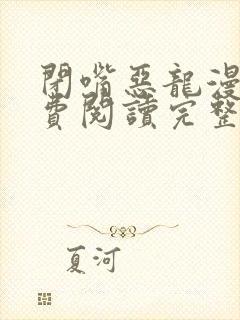 閉嘴惡龍漫
費閱讀完整
夏河